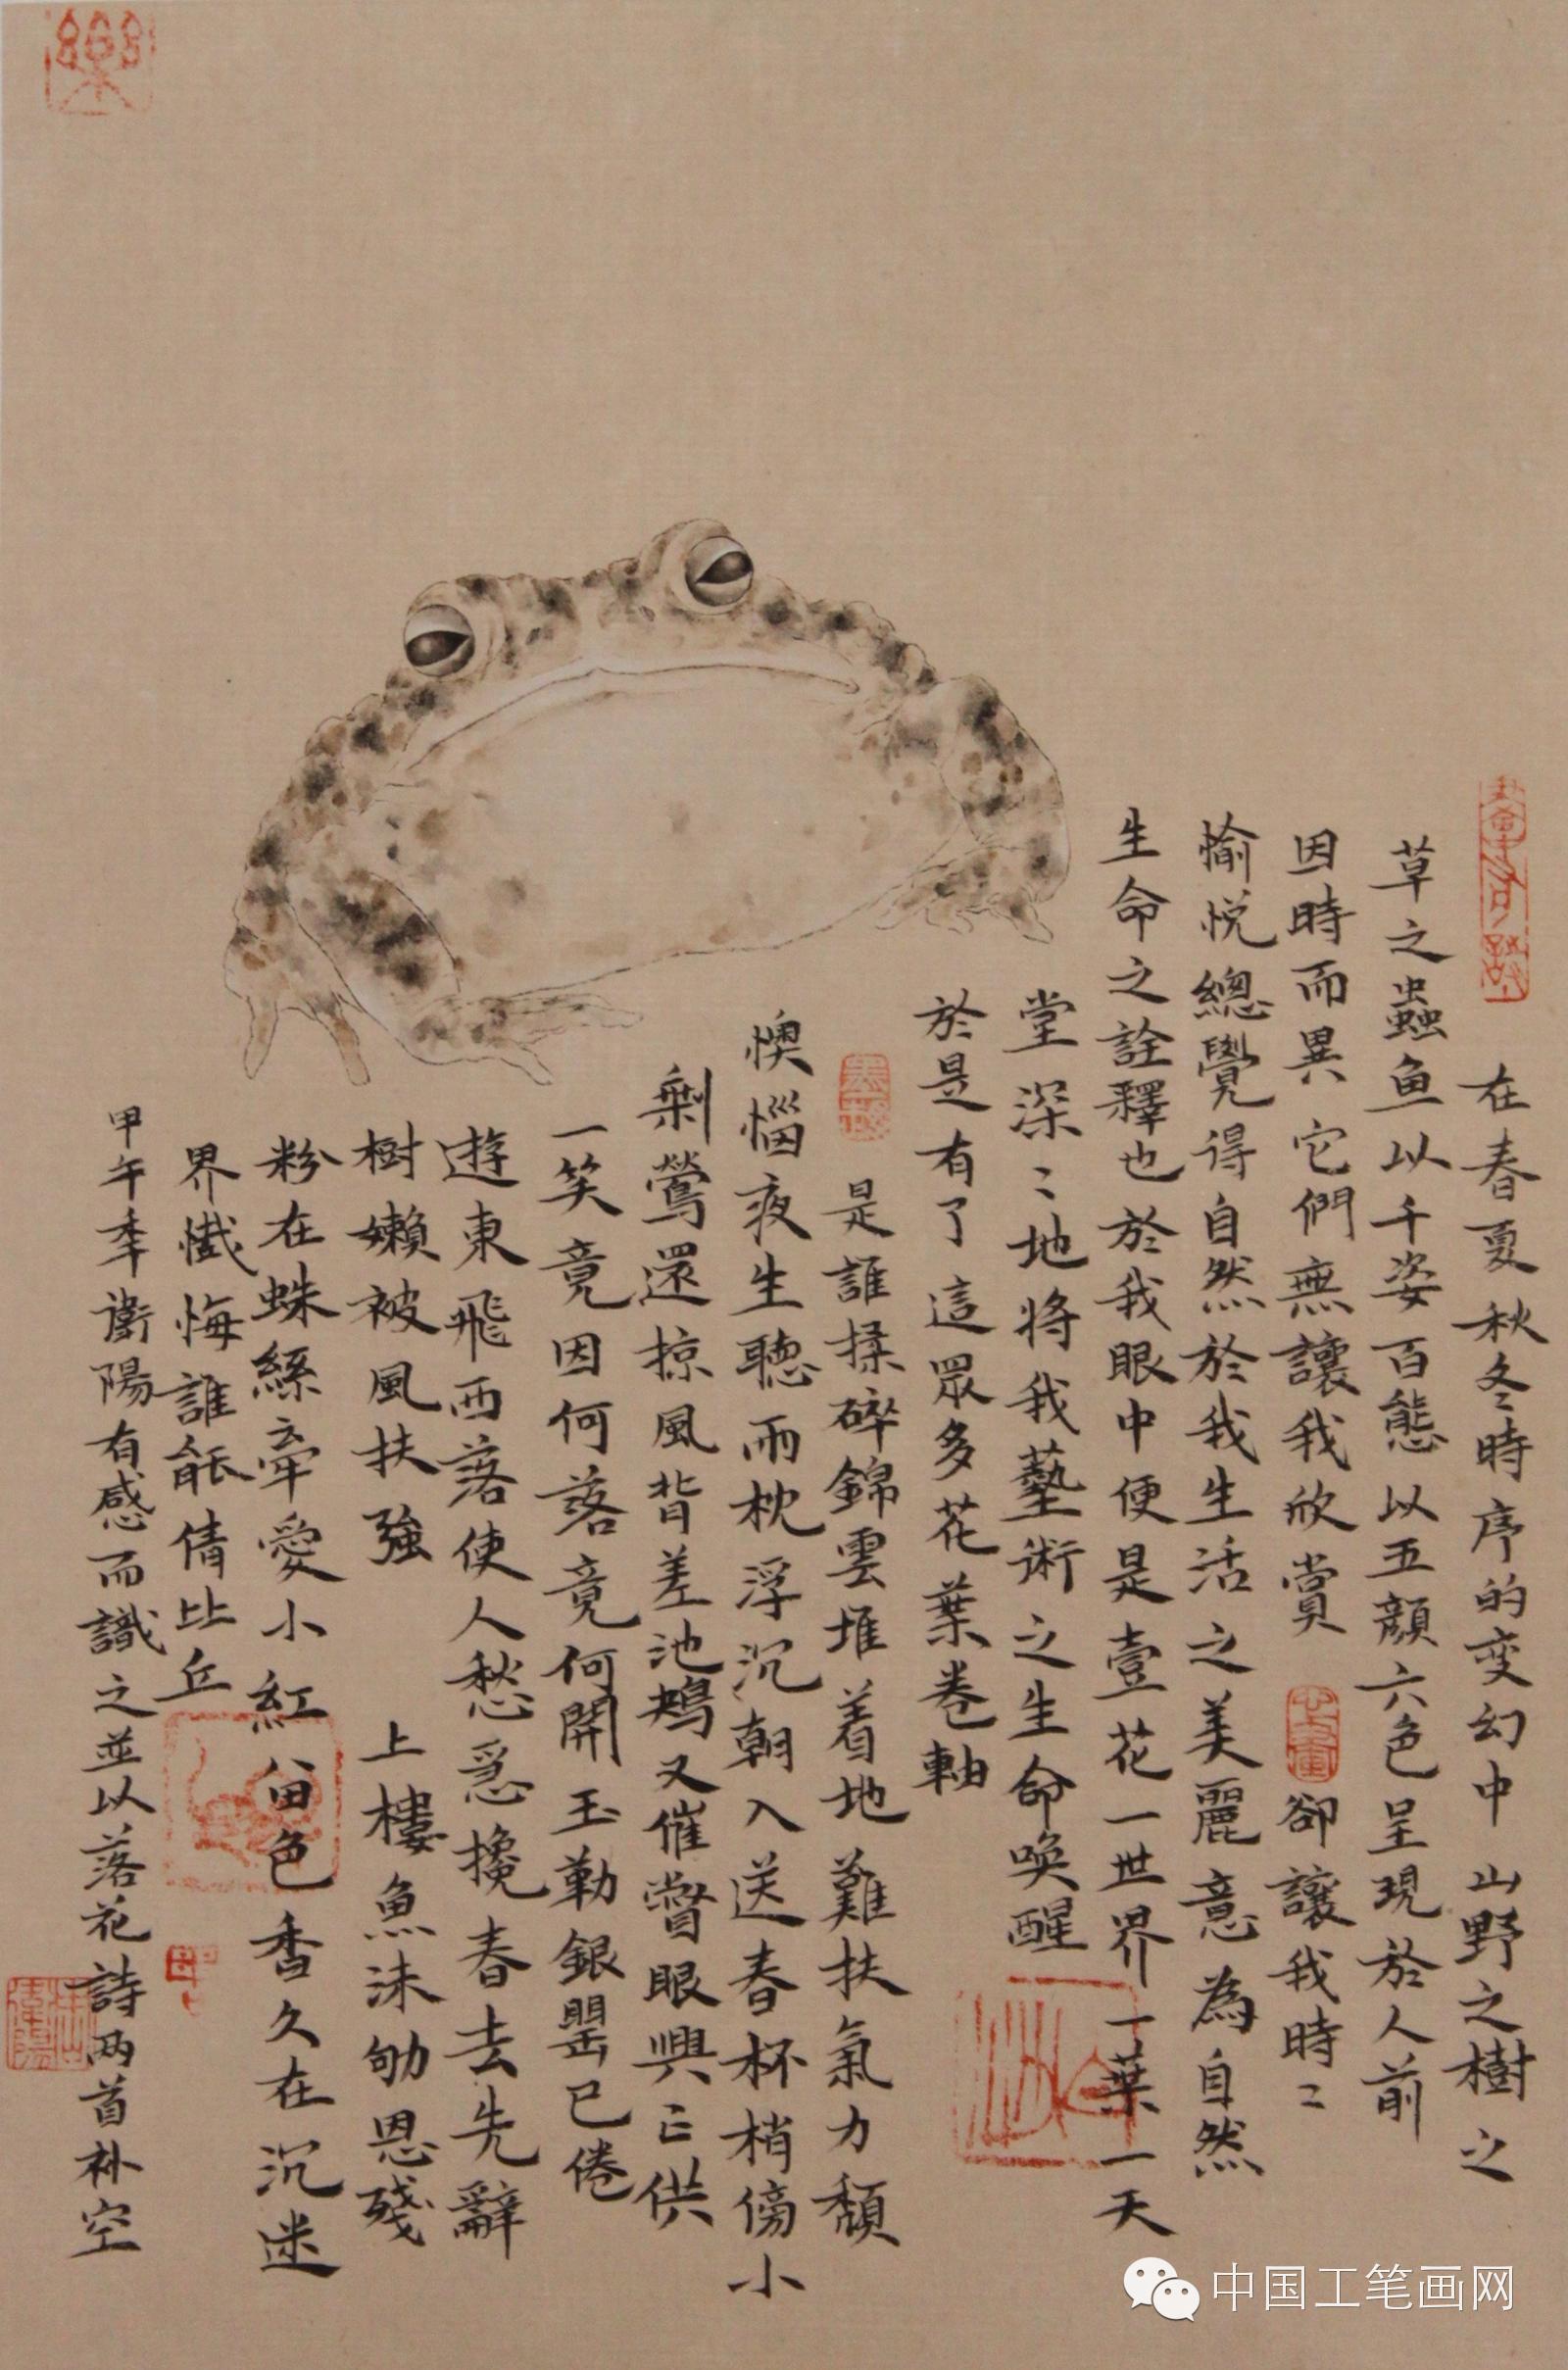 在春夏秋冬時序的变幻中山野之樹之
草之蟲鱼以千姿百態以五顔六色呈現於人前
因時而異它們無讓我欣賞卻讓我時〻
愉悦總覺得自然於我生活之美麗意為自然
生命之詮釋也於我眼中便是壹花一世界一葉一天
堂深〻地将我藝術之生命唤醒
於是有了這眾多花葉卷軸
是誰揉碎錦雲堆着地難扶氣力頹
懊惱夜生聽雨枕浮沉朝入送春杯梢傍小
剩鶯還掠風背差池鴂又催瞥眼興亡供
一笑竟因何落竟何開玉勒銀罌已倦
遊東飛西落使人愁爲攙春去先辭
樹嬾被風扶強上樓魚沫劬恩殘
粉在蛛絲牽愛小紅留色香久在沉迷
界懺悔誰能倩比丘
甲午季衞陽有感而識之並以落花詩两首补空
中国工笔画网